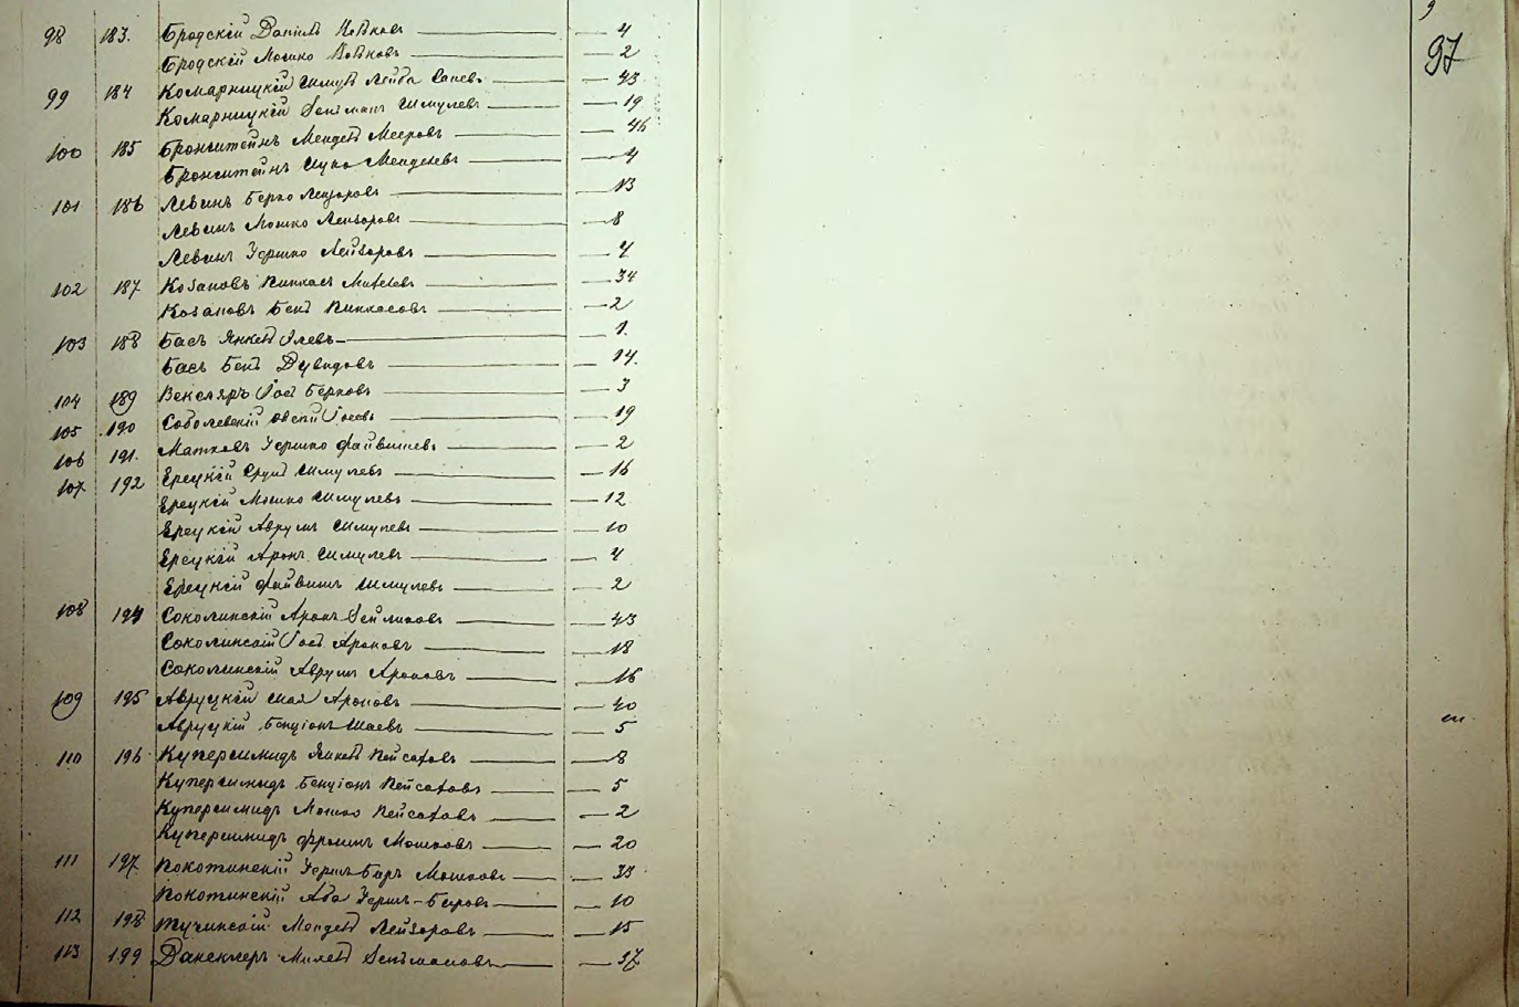 97
98 183. Бродскій Даніилъ Ицковъ 4
Бродскій Мошко Ицковъ 2
99 184 Комарницкій Шмуль Лейба 43
Комарницкій Зельманъ Шмулевъ 19
100 185 Бронштейнъ Мендель Мееровъ 46
Бронштейнъ Ицко Менделевъ 4
101 186 Левинъ Берко Лейзоровъ 13
Левинъ Мошко Лейзоровъ 8
Левинъ Гершко Лейзоровъ 4
102 187 Козановъ Пинхасъ 34
Козановъ Бенъ Пинхасовъ 2
103 188 Басъ Янкель 1.
Басъ Бенъ Дувидовъ 14.
104 189 Векслеръ Іось Берковъ 3
105 190 Соболевскій Овсій Іосевъ 19
106 191. Матковъ Гершко Файвишевъ 2
107 192 Ерецкій Сруль Шмулевъ 16
Ерецкій Мошко Шмулевъ 12
Ерецкій Аврумъ Шмулевъ 10
Ерецкій Аронъ Шмулевъ 4
Ерецкій Файвишъ Шмулевъ 2
108 194 Соколинскій Аронъ Зельмановъ 43
Соколинскій Іось Ароновъ 18
Соколинскій Аврумъ Ароновъ 16
109 195 Авруцкій Шая Ароновъ 40
Авруцкій Бенціонъ Шаевъ 5
110 196 Купершмидъ Янкель Пейсаховъ 8
Купершмидъ Бенціонъ Пейсаховъ 5
Купершмидъ Мошко Пейсаховъ 2
Купершмидъ Фроимъ Мошковъ 20
111 197. Покотинскій Гершъ-Беръ Мошковъ 33
Покотинскій Аба Гершъ-Беровъ 10
112 198 Тучинскій Мендель Лейзоровъ 15
113 199 Данеклеръ Зельмановъ 37